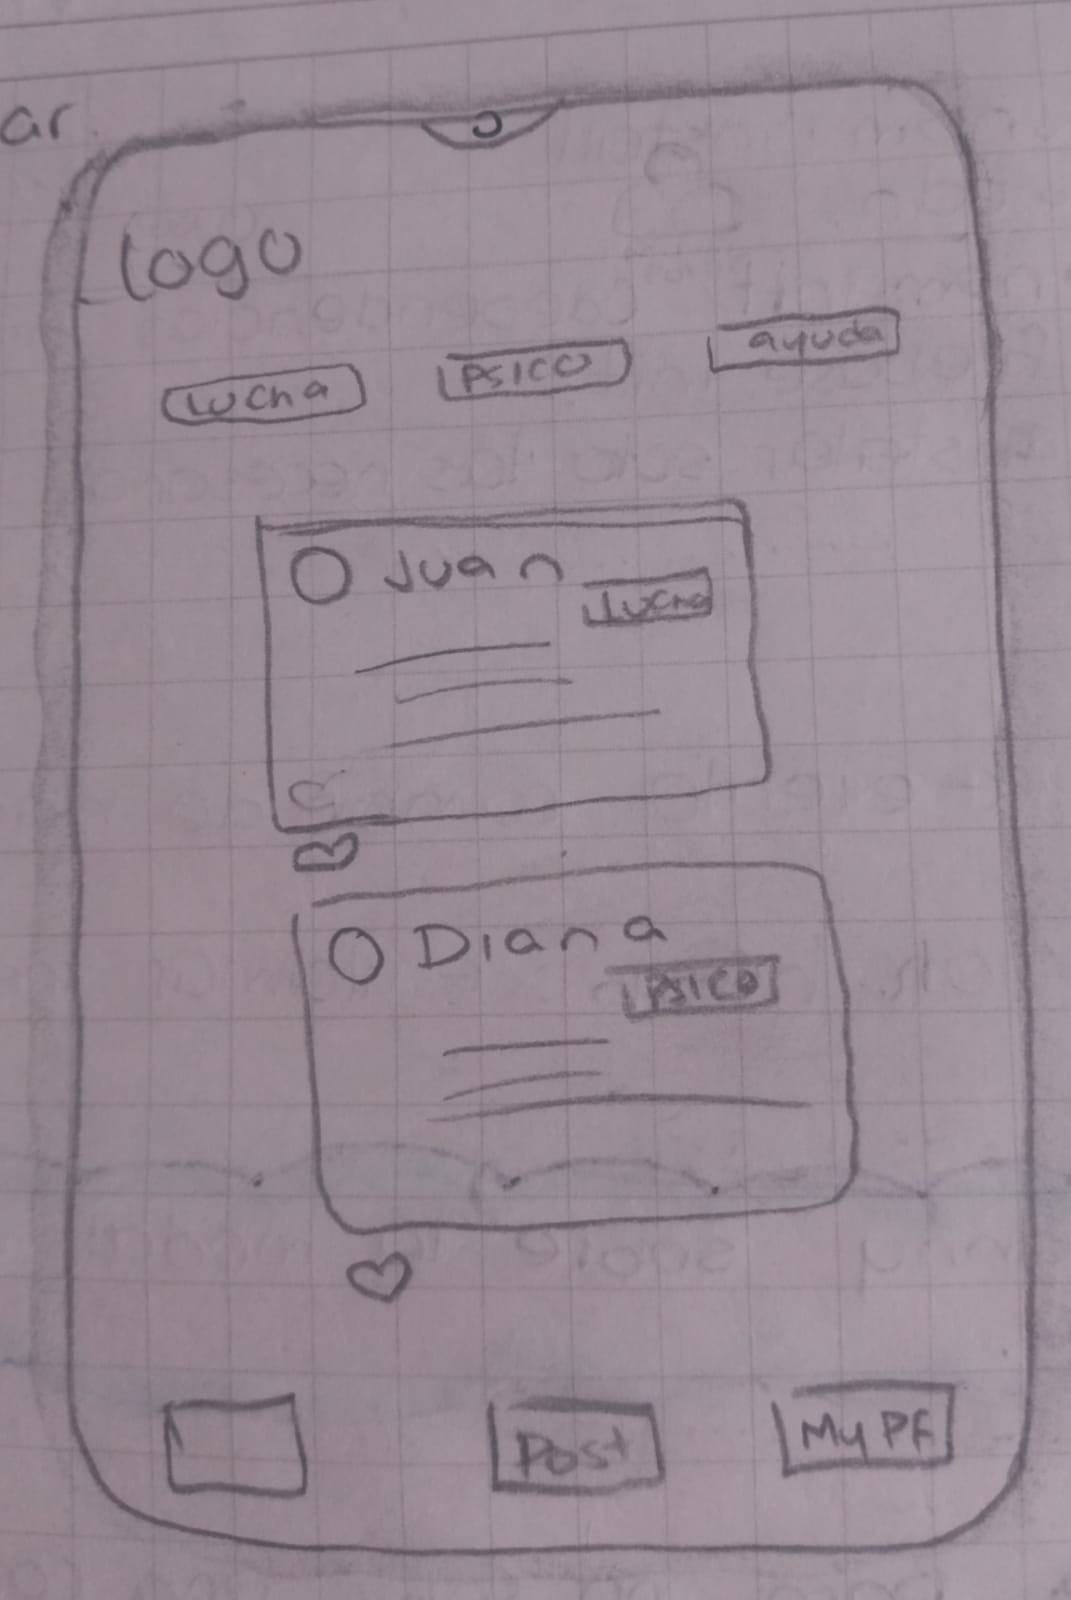 ar
logo
lucha
PSICO
ayuda
Juan
lucha
Diana
PSICO
Post
My PF